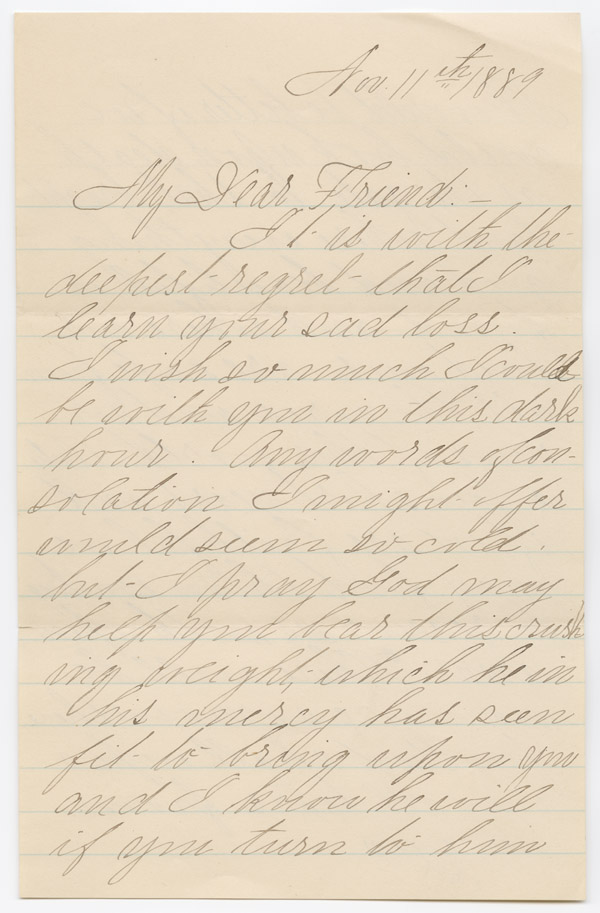 Nov. 11th 1889
My Dear Friend:-
It is with the
deepest regret that I
learn your sad loss.
I wish so much I could
be with you in this dark
hour. Any words of con-
solation I might offer
would seem so cold.
but I pray God may
help you bear this crush
ing weight, which he in
his mercy has seen
fit to bring upon you
and I know he will
if you turn to him